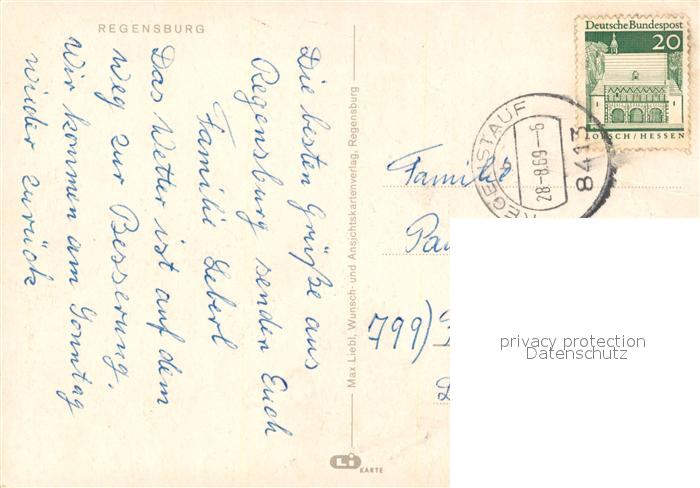 REGENSBURG
Die besten Grüße aus
Regensburg senden Euch
Familie Leberl
Das Wetter ist auf dem
Weg zur Besserung.
Wir kommen am Sonntag
wieder zurück
Max Liebl, Wunsch- und Ansichtskartenverlag, Regensburg
Li KARTE
Deutsche Bundespost
20
LORSCH / HESSEN
REGENSTAUF
28.8.69-9
8413
Familie
Pa
799)
privacy protection
Datenschutz